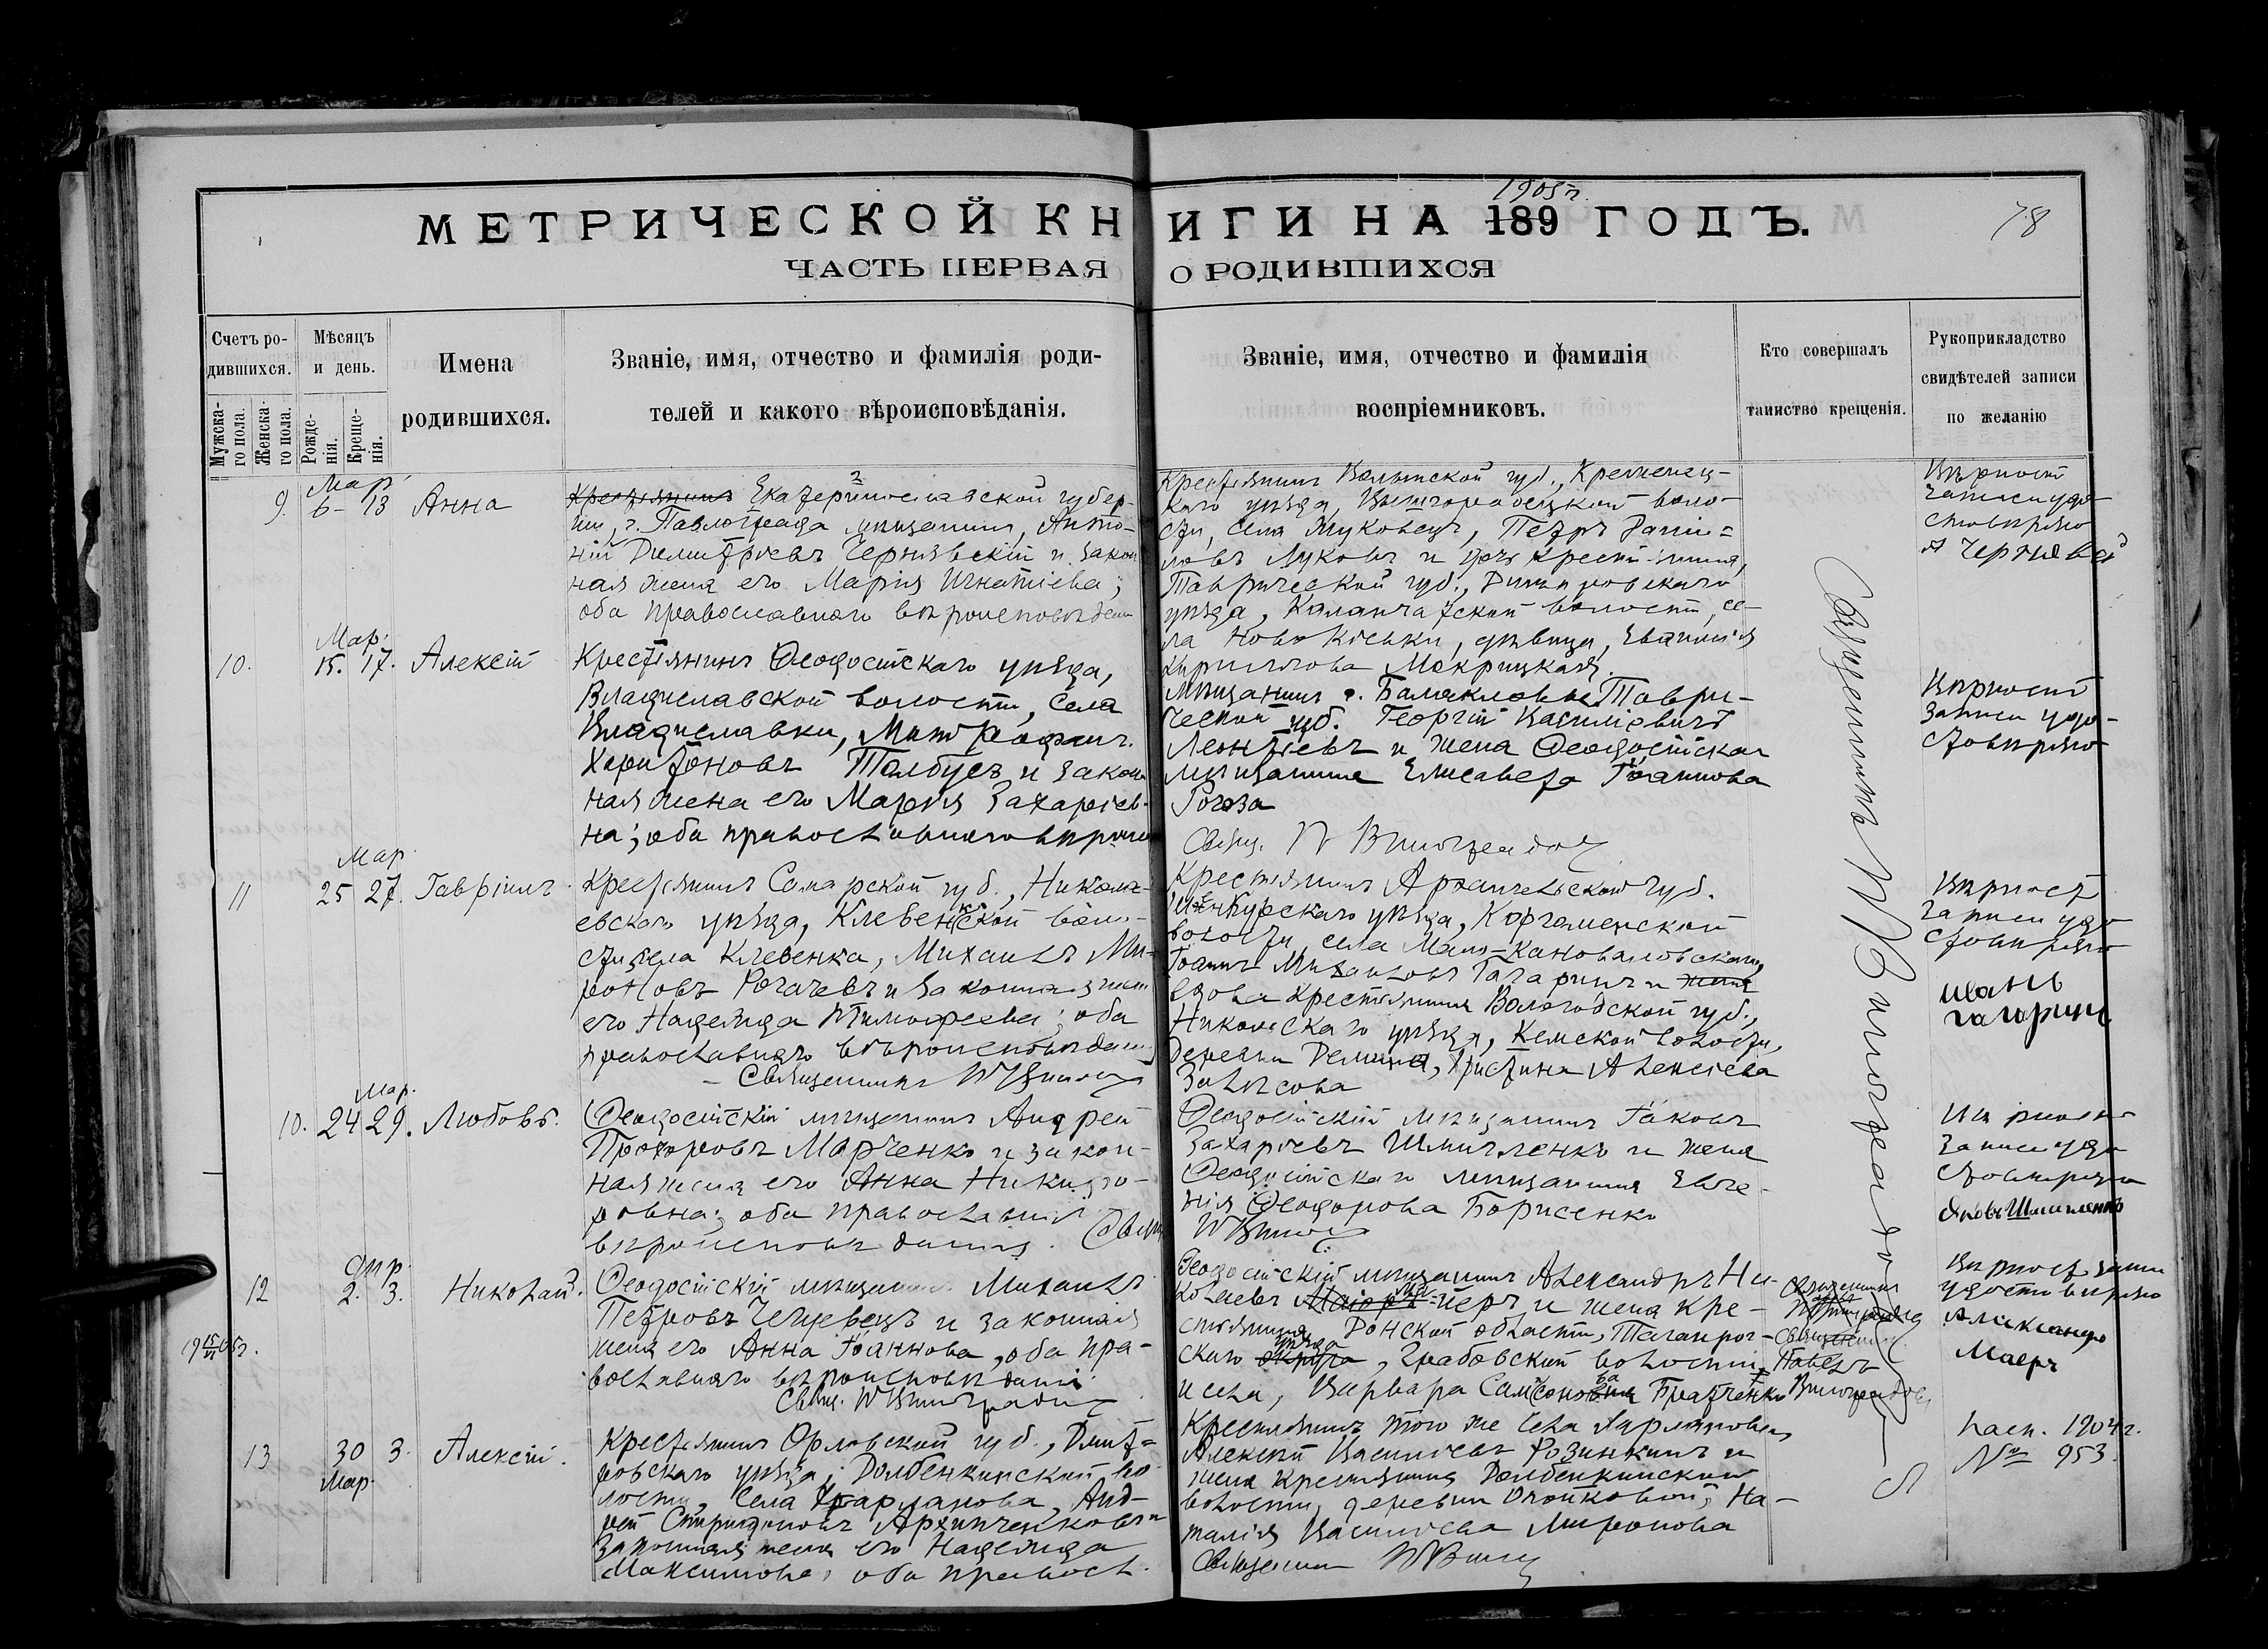 МЕТРИЧЕСКОЙ КНИГИ НА 189 ГОДЪ.
1905 г.
78
ЧАСТЬ ПЕРВАЯ О РОДИВШИХСЯ
Счетъ родившихся.
Мужскаго пола.
Женскаго пола.
Мѣсяцъ и день.
Рожденія.
Крещенія.
Имена
родившихся.
Званіе, имя, отчество и фамилія роди-
телей и какого вѣроисповѣданія.
Званіе, имя, отчество и фамилія
воспріемниковъ.
Кто совершалъ
таинство крещенія.
Рукоприкладство
свидѣтелей записи
по желанію
Мар.
9. 6 - 13 Анна
Крестьянинъ Екатеринославской губер-
ніи, г. Павлограда мѣщанинъ, Анто-
ній Димитріевъ Чернявскій и закон
ная жена его Марія Игнатіева;
оба православнаго вѣроисповѣдан
Крестьянинъ Волынской губ., Кременец-
каго уѣзда, Вышгородецкой воло-
сти, села Жуковецъ, Петръ Дани=
ловъ Луковъ и дочь крестьянина,
Таврической губ., Днѣпровскаго
уѣзда, Каланчатской волости, се-
ла Ново Кіевки, дѣвица,
Кириллова Мокрицкая.
Вѣрность
записи удо-
стовѣряю
А Чернявскій
Мар.
10. 15. 17. Алексій
Крестьянинъ Ѳеодосійскаго уѣзда,
Владиславской волости, села
Владиславки, Митрофанъ
Харитоновъ Толбуев и закон
ная жена его Марія Захаріев-
на; оба православнаго вѣроисп
Мѣщанинъ г. Балаклавы Таври-
ческой губ. Георгій Василіевичъ
Леонтіевъ и жена Ѳеодосійскаго
мѣщанина Елисавета Іоаннова
Рогоза
Свящ. П Виноградов
Вѣрность
записи удо-
стовѣряю
Мар.
11 25 27. Гавріилъ
Крестьянинъ Самарской губ., Никола-
евскаго уѣзда, Клевенской воло-
сти села Клевенка, Михаилъ Ми-
роновъ Рогачевъ и законная жена
его Надежда Тимофеева; оба
православнаго вѣроисповѣданія
Священникъ П Виног
Крестьянинъ Архангельской губ.
Шенкурскаго уѣзда,
волости, села Мало-Кановаловскаго,
Іоаннъ Михаиловъ Гагаринъ и жена
вдова крестьянина Вологодской губ.,
Никольскаго уѣзда, Кемской волости,
деревни Демина, Христина Алексіева
Залѣсова
Вѣрность
записи удо
стовѣряю
Иванъ
Гагаринъ
Мар.
10. 24 29. Любовь.
Ѳеодосійскій мѣщанинъ Андрей
Прохоровъ Марченко и закон-
ная жена его Анна Никифо-
ровна; оба православнаго
вѣроисповѣданія. Свящ
Ѳеодосійскій мѣщанинъ Іаковъ
Захаріевъ Шмигленко и жена
Ѳеодосійскаго мѣщанина Евге-
нія Ѳеодорова Борисенко
П Виног
Вѣрность
записи удо
стовѣряю
Яковъ Шмигленко
Апр.
12 2. 3. Николай.
Ѳеодосійскій мѣщанинъ Михаилъ
Петровъ и законная
жена его Анна Іоаннова, оба пра-
вославнаго вѣроисповѣданія
Свящ. П Виноградов
Ѳеодосійскій мѣщанинъ Александръ Ни-
колаевъ и жена кре-
стьянина Донской области, Таганрог-
скаго уѣзда округа, Грабовской волости
и села, Варвара Самсонова Братченко
Священникъ
Павелъ
Виноградов
Вѣрность записи
удостовѣряю
Александр
Маеръ
13 30 3. Алексій.
Мар.
Крестьянинъ Орловской губ., Дмит=
ровскаго уѣзда, Долбенкинской во
лости, села Харланова, Анд-
рей Спиридоновъ Архипченковъ и
законная жена его Надежда
Максимова, оба правосл.
Крестьянинъ того же села Харланова
Алексій Василіевъ Розинкинъ и
жена крестьянина Долбенкинской
волости, деревни, На-
талія Василіева Миронова
Священник П Виног
пасп. 1904 г.
№ 953.
Священникъ П Виноградовъ